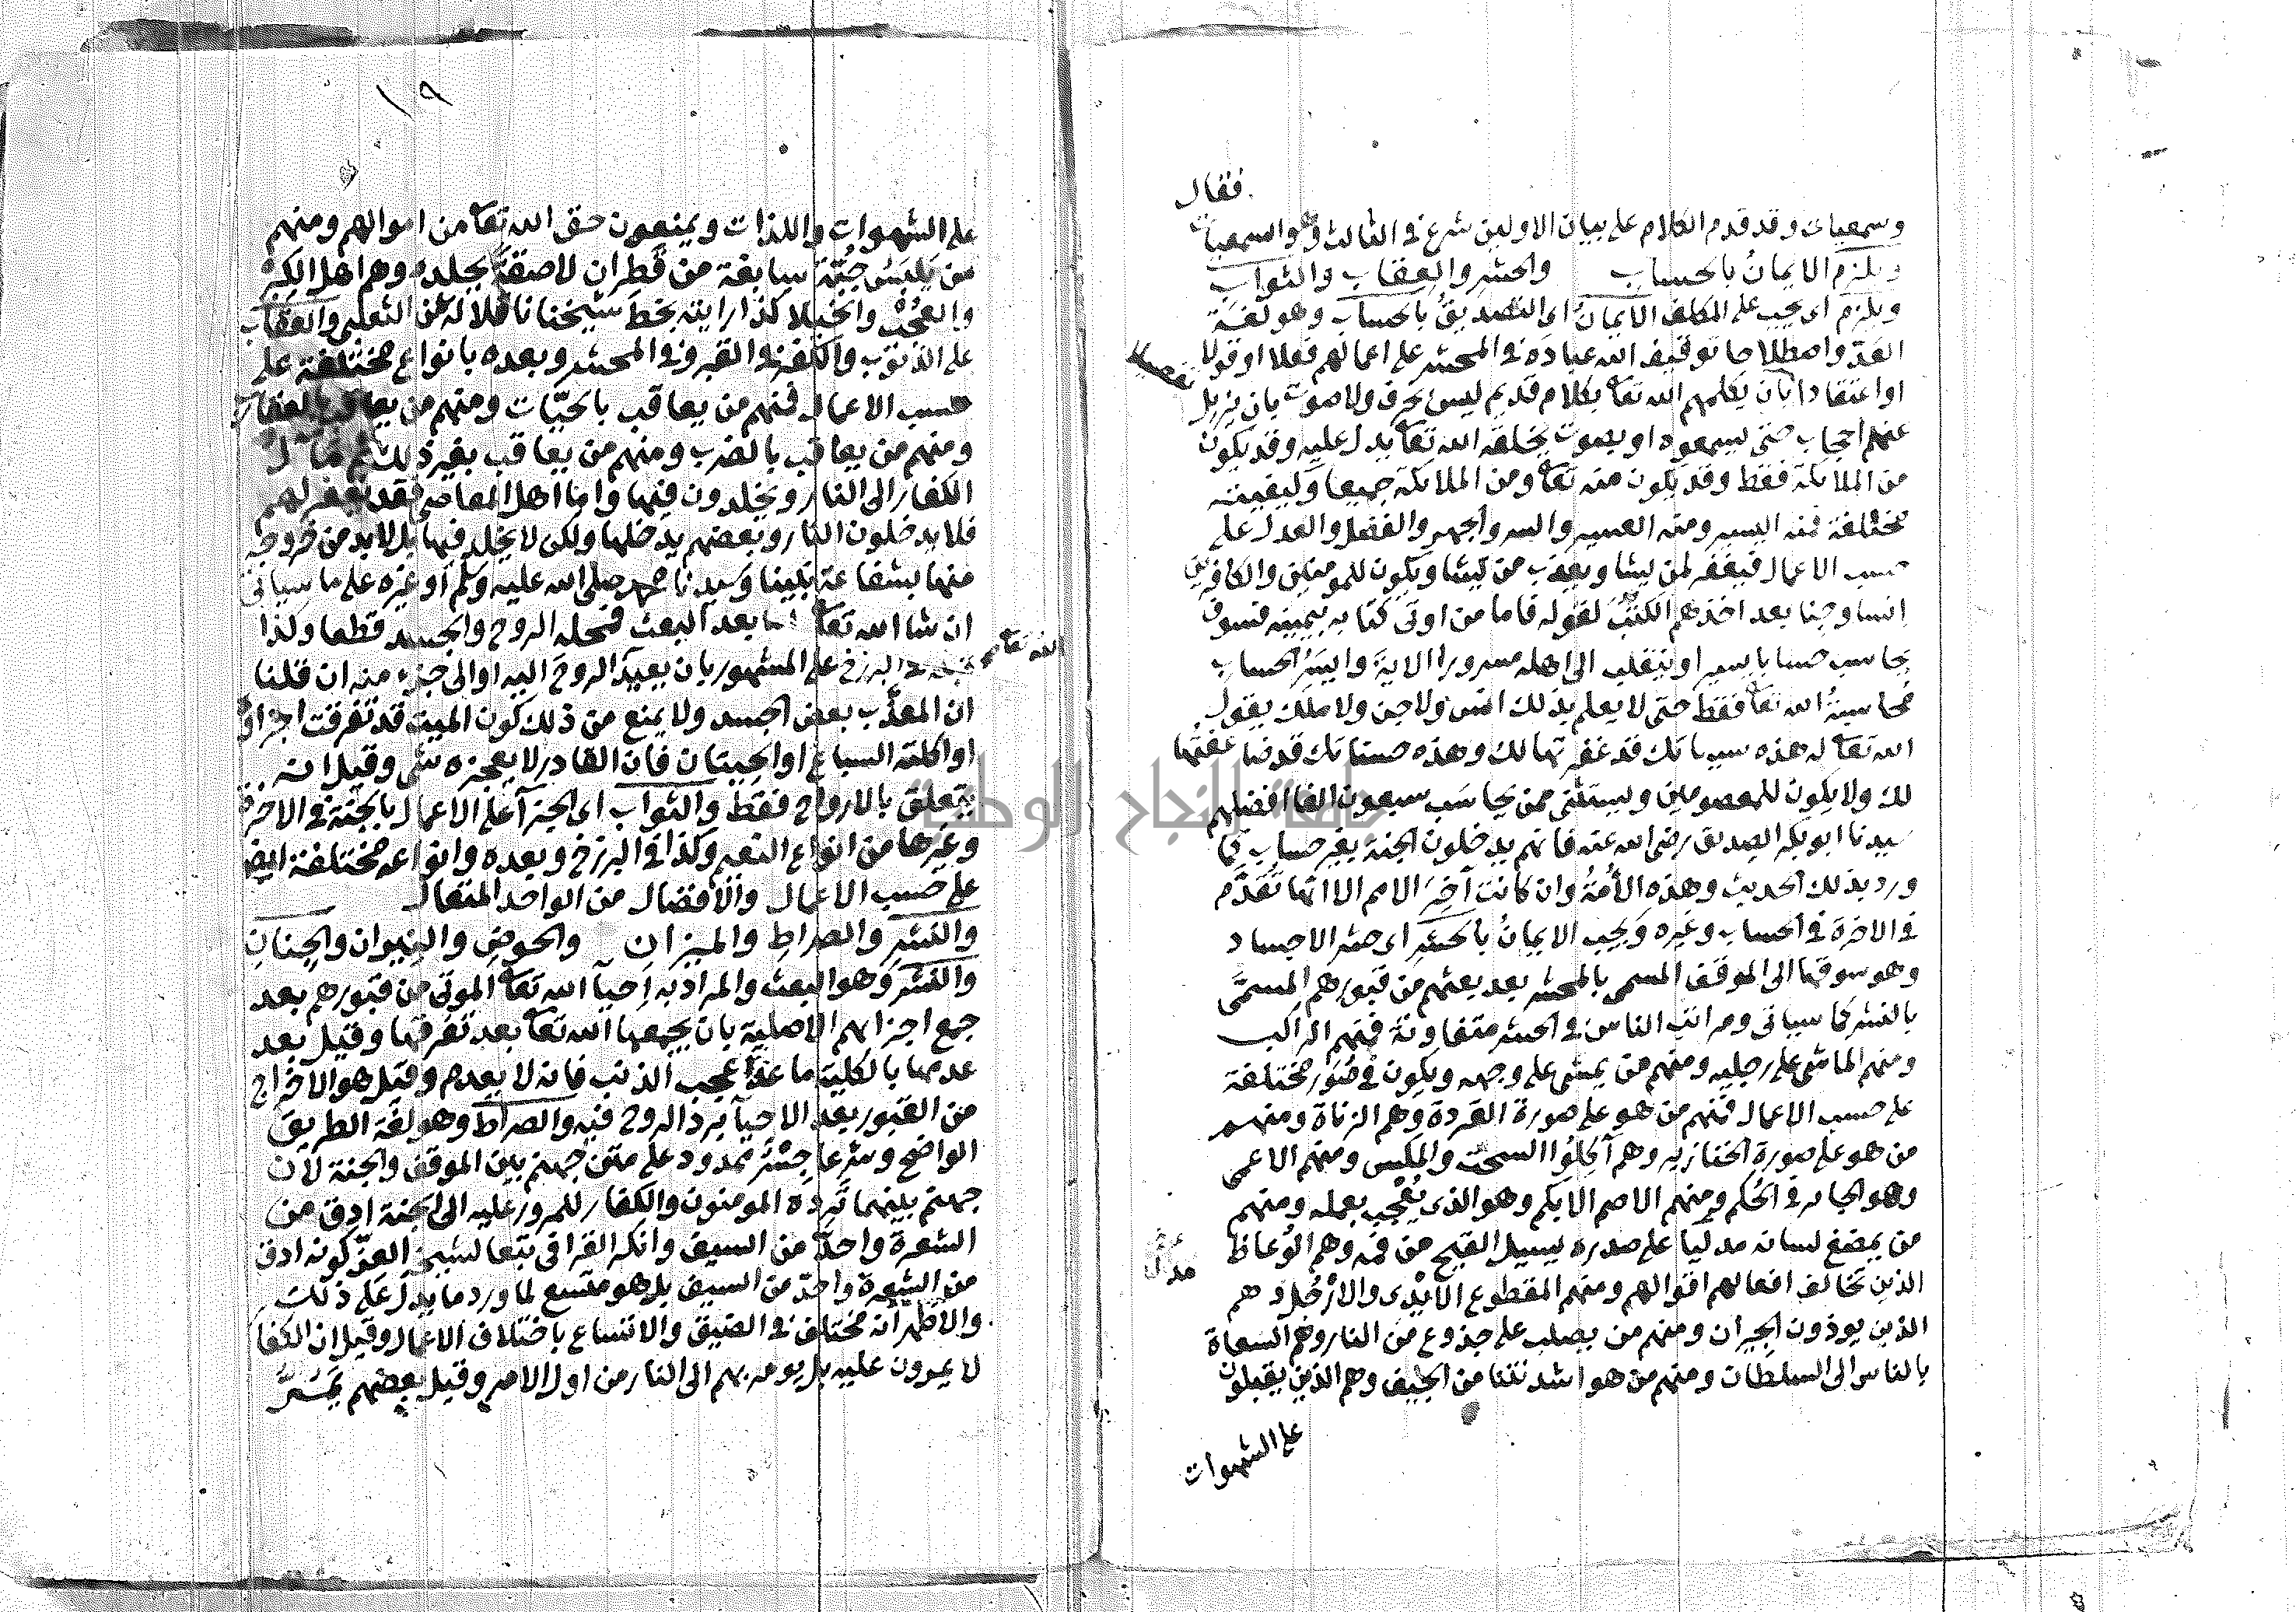 فقال
وسمعيات وقد قدم الكلام على بيان الاولين شرع في الثالث وهو السمعيات
ويلزم الايمانُ بالحساب والحشر والعقاب والثواب
ويلزم اى يجب على المكلف الايمانُ اى التصديقُ بالحساب وهو لغة
العَدّ واصطلاحا توقيف الله عباده في المحشر على اعمالهم فعلا او قولا
تفصيلا
او اعتقادا بان يكلمهم الله تعا بكلام قديم ليس بحرف ولا صوت بان يزيل
عنهم الحجاب حتى يسمعوه او بصوت يخلقه الله تعا يدل عليه وقد يكون
من الملايكة فقط وقد يكون منه تعا ومن الملايكة جميعا وكيفيته
مختلفة فمنه اليسير ومنه العسير والسر والجهر والفضل والعدل على
حسب الاعمال فيغفر لمن يشا ويعذب من يشا ويكون للمومنين والكافرين
انسا وجنا بعد اخذهم الكتبَ لقوله فاما من اوتى كتابه بيمينه فسوف
يحاسب حسابا يسيرا وينقلب الى اهله مسرورا الاية وايسَرُ الحساب
محاسبةُ الله تعا فقط حتى لا يعلم بذلك انس ولا جن ولا ملك يقول
الله تعا له هذه سيباتك قد غفرتها لك وهذه حسناتك قد ضاعفتها
لك ولا يكون للمعصومين ويستثنى ممن يحاسَب سبعون الفا افضلهم
سيدنا ابو بكر الصديق رضى الله عنه فانهم يدخلون الجنة بغير حساب كما
ورد بذلك الحديث وهذه الأُمةُ وان كانت آخِرَ الامم الا انها تُقَدَّم
في الاخرة في الحساب وغيره ويجب الايمانُ بالحشر اى حشر الاجساد
وهو سوقها الى الموقف المسمى بالمحشر بعد بعثهم من قبورهم المسمَّى
بالنشر كما سياتى ومراتب الناس في الحشر متفاوتة فمنهم الراكب
ومنهم الماشى على رجليه ومنهم من يمشى على وجهه ويكون في صُوَر مختلفة
على حسب الاعمال فمنهم من هو على صورة القردة وهم الزناة ومنهم
من هو على صورة الخنازير وهم آكِلُوا السحت والمكس ومنهم الاعمى
وهو الجاير في الحُكم ومنهم الاصم الابكم وهو الذى يُعْجِب بعمله ومنهم
من يمضغ لسانه مدليا على صدره يسيل القيح من فمه وهم الوُعاظ
الذين تخالف افعالهم اقوالهم ومنهم المقطوع الايْدى والارْجُل وهم
الذين يوذون الجيران ومنهم من يصلب على جذوع من النار وهم السعاة
بالناس الى السلطات ومنهم من هو اشد نتنا من الجيف وهم الذين يقبلون
على الشهوات
١٩
على الشهوات واللذات ويمنعون حق الله تعا من اموالهم ومنهم
من يَلبَسُ جُبَّة سابغة من قَطِران لاصقة بجلده وهم اهل الكِبْر
والعُجْب والخيلا كذا رايته بخط شيخنا ناقلا له عن الثعلبى والعقاب
على الذنوب والكفر في القبر وفي المحشر وبعده بانواع مختلفة على
حسب الاعمال فمنهم من يعاقب بالحيّات ومنهم من يعاقب بالعقارب
ومنهم من يعاقب بالضرب ومنهم من يعاقب بغير ذلك
الكفار الى النار ويخلدون فيها واما اهل المعاصى فقد يغفر لهم
فلا يدخلون النار وبعضهم يدخلها ولكن لا يخلد فيها بل لا بد من خروجه
منها بشفاعة نبينا وسيدنا محمد صلى الله عليه وسلم او غيره على ما سياتى
ان شا الله تعا بعد البعث فمحله الروح والجسد قطعا وكذا
قبله في البرزخ على المشهور بان يعيد الروحَ اليه او الى جزء منه ان قلنا
الله تعا
ان المعذَّب بعض الجسد ولا يمنع من ذلك كون الميت قد تفرقت اجزاوه
او اكلته السباع او الحيتان فان القادر لا يعجزه شى وقيل انه
يتعلق بالارواح فقط والثواب اى الجزآ على الاعمال بالجنة في الاخرة
وغيرها من انواع النعيم وكذا في البرزخ وبعده وانواعه مختلفة ايضا
على حسب الاعمال والافضال من الواحد المتعال
والنشرِ والصراطِ والميزانِ والحوضِ والنيران والجنانِ
والنشر وهو البعث والمراد به اِحيآ الله تعا الموتى من قبورهم بعد
جمع اجزايهم الاصلية بان يجمعها الله تعا بعد تفرقها وقيل بعد
عدمها بالكلية ما عدا عجب الذنب فانه لا يعدم وقيل هو الاخراج
من القبور بعد الاحيآ برد الروح فيه والصراط وهو لغة الطريق
الواضح وشرعا جِسْرٌ ممدود على متن جهنم بين الموقف والجنة لان
جهنم بينهما تَرِده المومنون والكفار للمرور عليه الى الجنة ادق من
الشعرة واحدّ من السيف وانكر القرافى تبعا لشيخه العزّ كونه ادق
من الشعرة واحدّ من السيف بل هو متسع لما ورد مما يدل على ذلك
والاظهر انه مختلف في الضيق والاتساع باختلاف الاعمال وقيل ان الكفار
لا يمرون عليه بل يومر بهم الى النار من اول الامر وقيل بعضهم يَمُرُّ
جامعة النجاح الوطنية